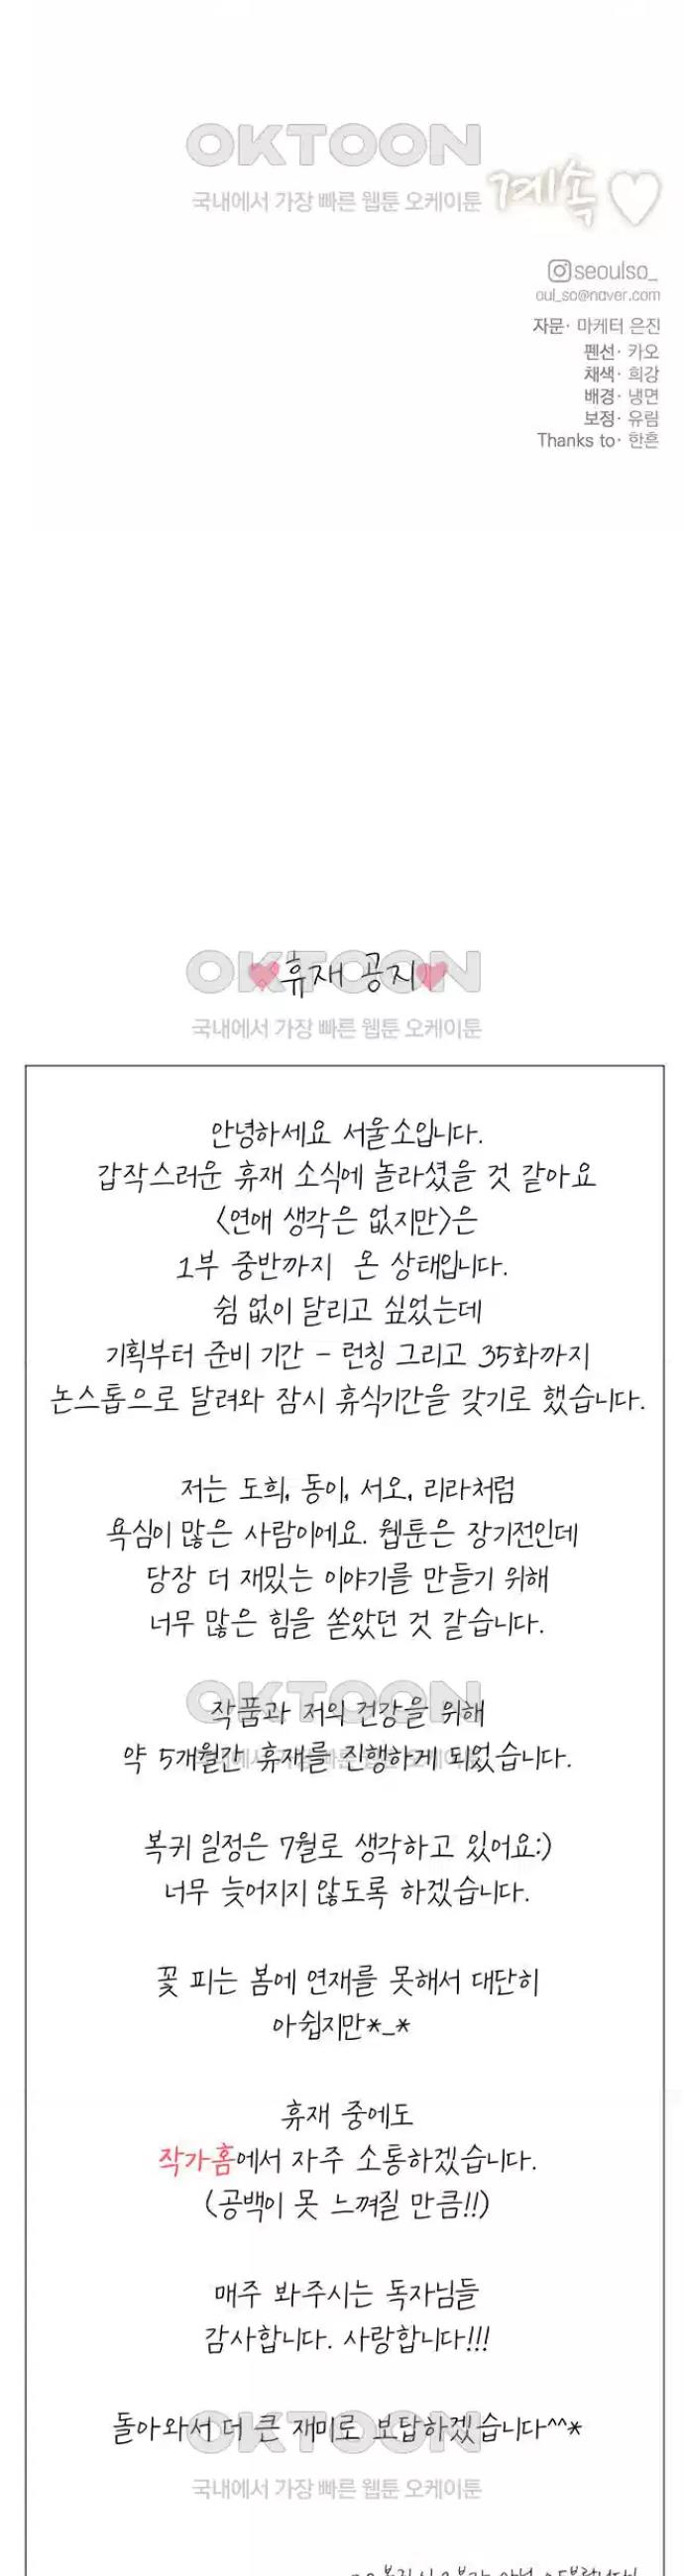 OKTOON
국내에서 가장 빠른 웹툰 오케이툰
계속♡
seoulso_
oul_so@naver.com
자문· 마케터 은진
펜선· 카오
채색· 희강
배경· 냉면
보정· 유림
Thanks to· 한흔
OKTOON
♥휴재 공지♥
국내에서 가장 빠른 웹툰 오케이툰
안녕하세요 서울소입니다.
갑작스러운 휴재 소식에 놀라셨을 것 같아요
<연애 생각은 없지만>은
1부 중반까지 온 상태입니다.
쉼 없이 달리고 싶었는데
기획부터 준비 기간 - 런칭 그리고 35화까지
논스톱으로 달려와 잠시 휴식기간을 갖기로 했습니다.
저는 도희, 동이, 서오, 리라처럼
욕심이 많은 사람이에요. 웹툰은 장기전인데
당장 더 재밌는 이야기를 만들기 위해
너무 많은 힘을 쏟았던 것 같습니다.
OKTOON
작품과 저의 건강을 위해
약 5개월간 휴재를 진행하게 되었습니다.
국내에서 가장 빠른 웹툰 오케이툰
복귀 일정은 7월로 생각하고 있어요:)
너무 늦어지지 않도록 하겠습니다.
꽃 피는 봄에 연재를 못해서 대단히
아쉽지만*_*
휴재 중에도
작가홈에서 자주 소통하겠습니다.
(공백이 못 느껴질 만큼!!)
매주 봐주시는 독자님들
감사합니다. 사랑합니다!!!
OKTOON
돌아와서 더 큰 재미로 보답하겠습니다^^*
국내에서 가장 빠른 웹툰 오케이툰